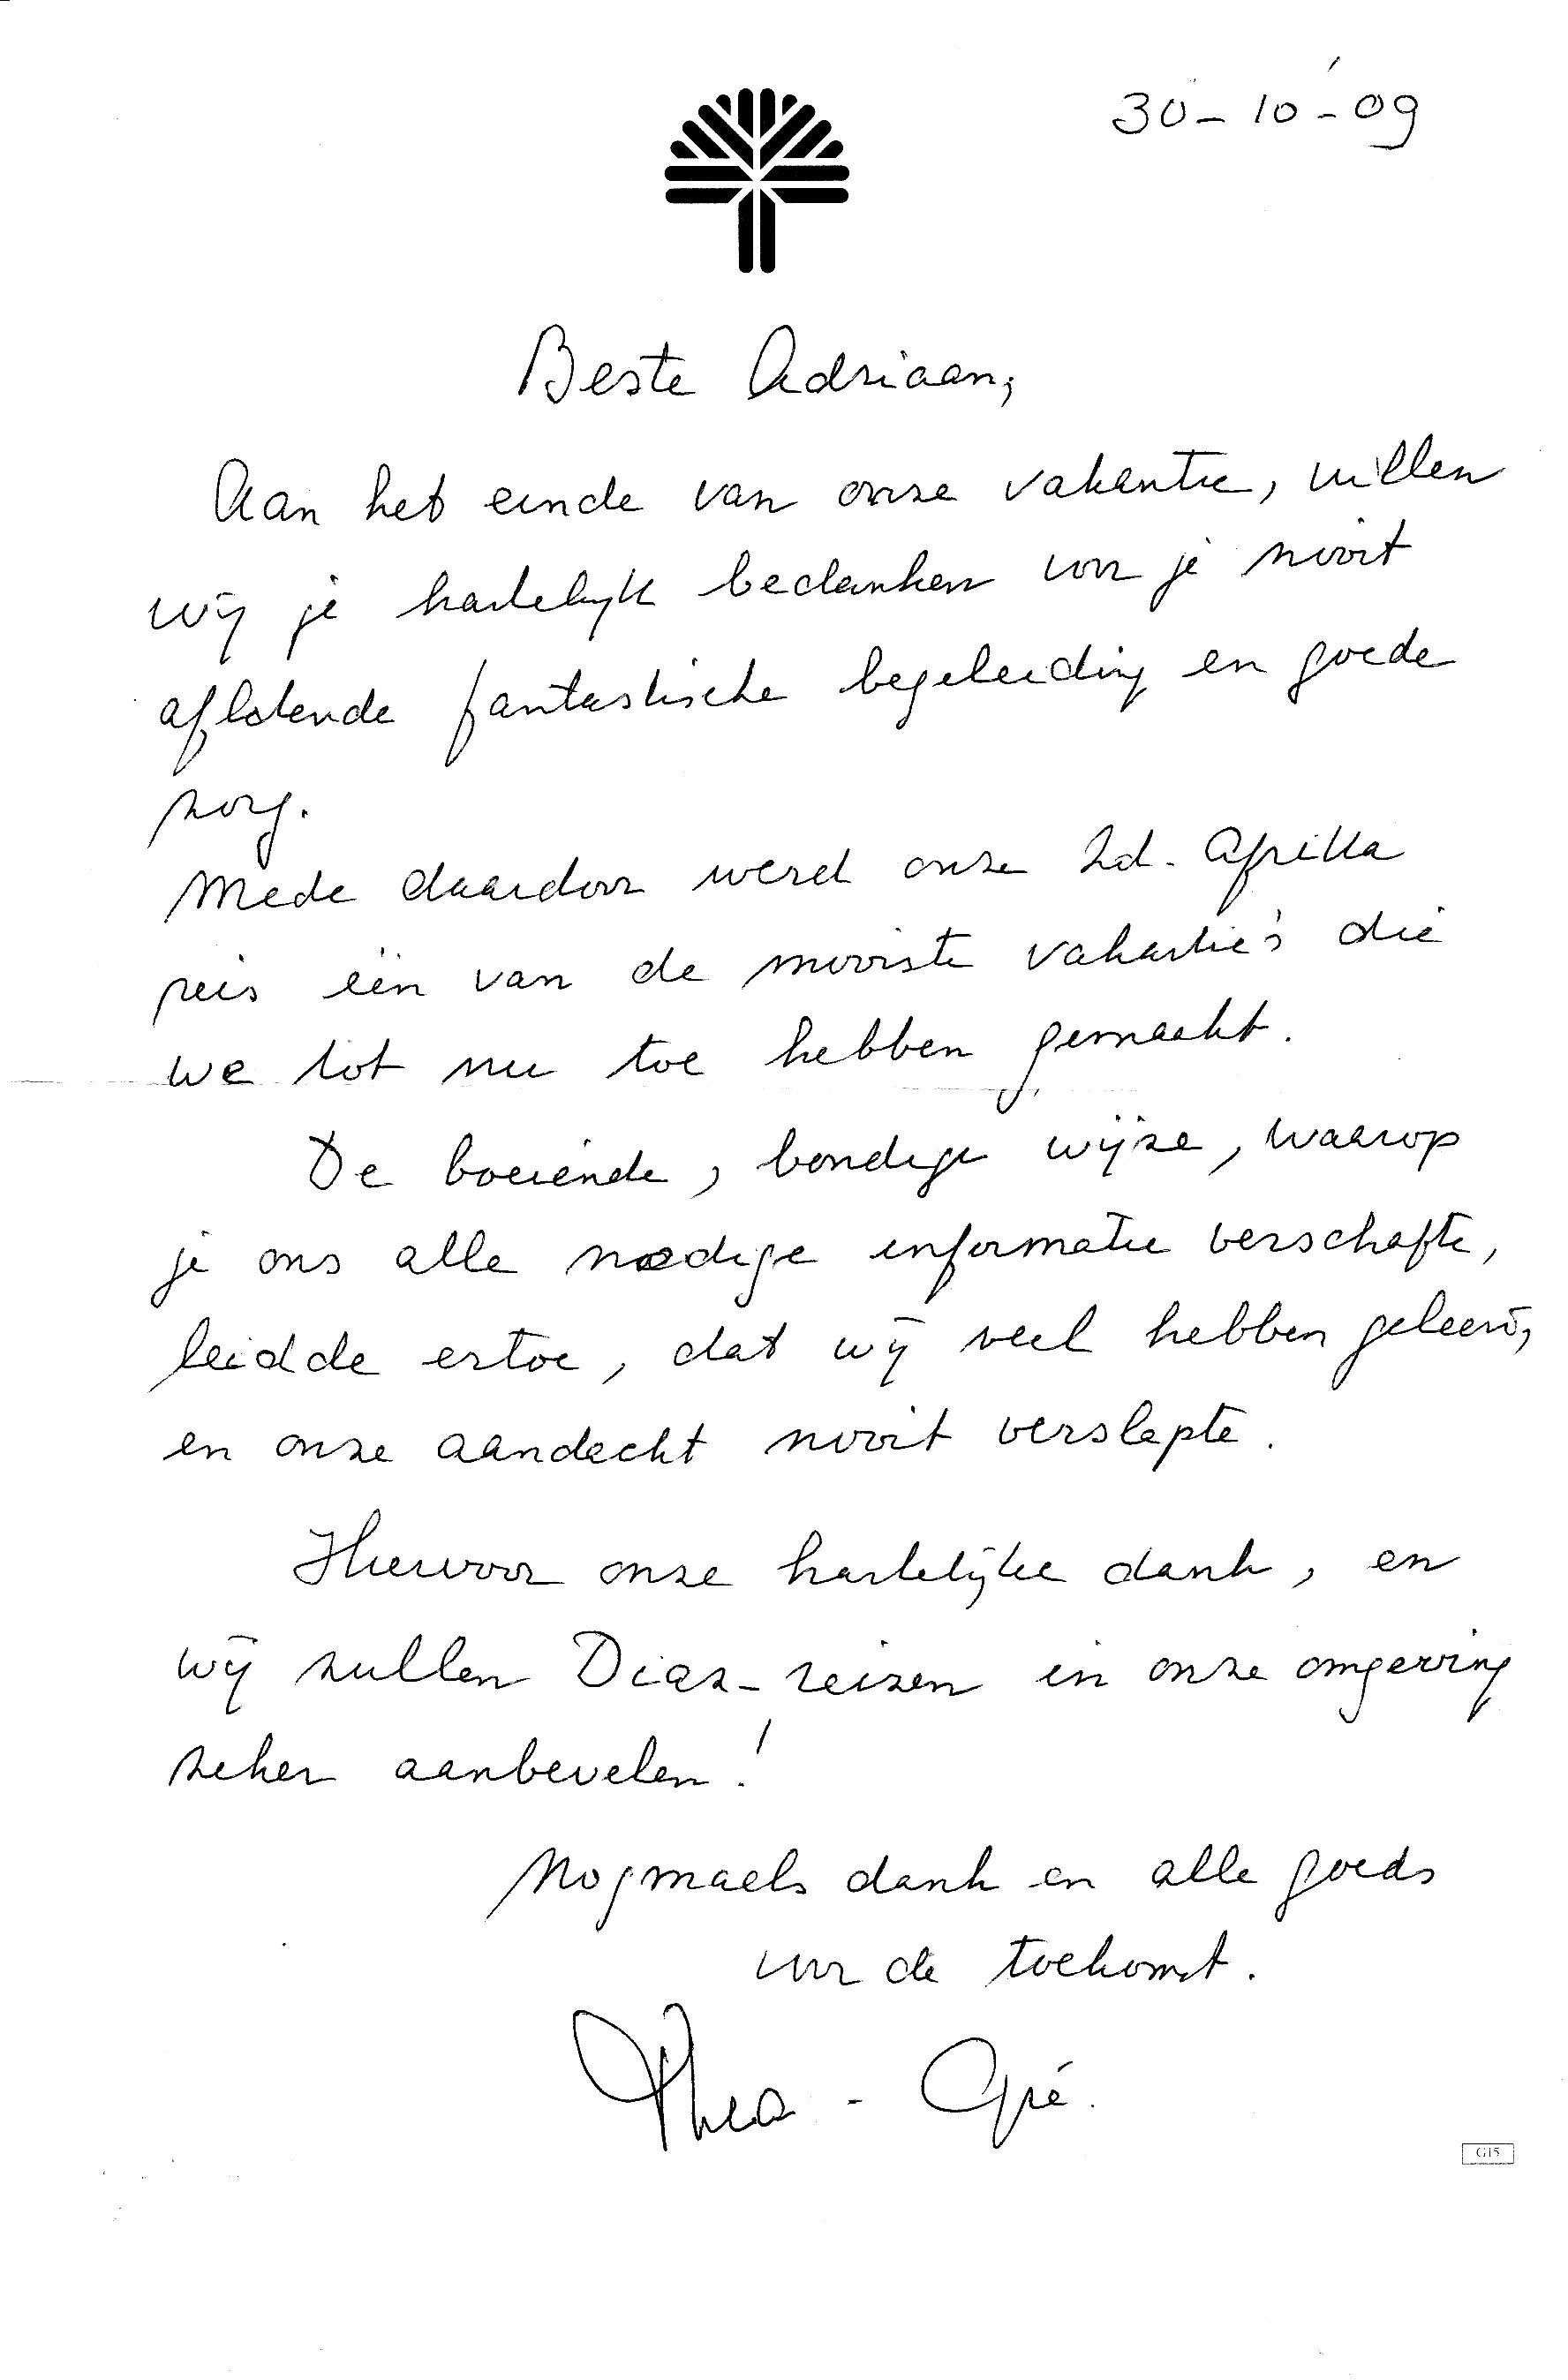 30-10-09
Beste Adriaan,
Aan het einde van onze vakantie, willen
wij je hartelijk bedanken voor je nooit
aflatende fantastische begeleiding en goede
zorg.
Mede daardoor werd onze Zd. Afrika
reis één van de mooiste vakantie's die
we tot nu toe hebben gemaakt.
De boeiende, bondige wijze, waarop
je ons alle nodige informatie verschafte,
leidde ertoe, dat wij veel hebben geleerd,
en onze aandacht nooit verslapte.
Hiervoor onze hartelijke dank, en
wij zullen Dias-reizen in onze omgeving
zeker aanbevelen!
Nogmaals dank en alle goeds
voor de toekomst.
Thea - Gré.
G15